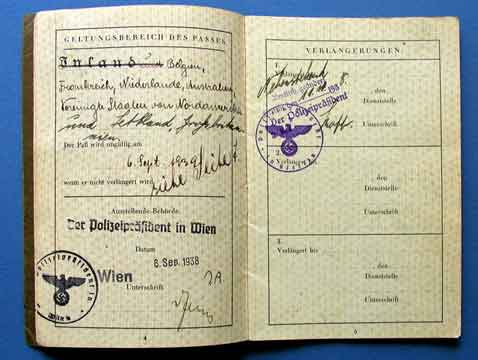 GELTUNGSBEREICH DES PASSES
Inland Belgien,
Frankreich, Niederlande, Australien
Vereinigte Staaten von Nordamerika
und Lettland, Großbritan-
nien.
Der Paß wird ungültig am
6. Sept. 1939
wenn er nicht verlängert wird
Ausstellende Behörde:
Der Polizeipräsident in Wien
Datum
6. Sep. 1938
Wien
Unterschrift
4
VERLÄNGERUNGEN
1.
, den
Dienststelle
Der Polizeipräsident
Unterschrift
2.
Verlängert
, den
Dienststelle
Unterschrift
3.
Verlängert bis
, den
Dienststelle
Unterschrift
5